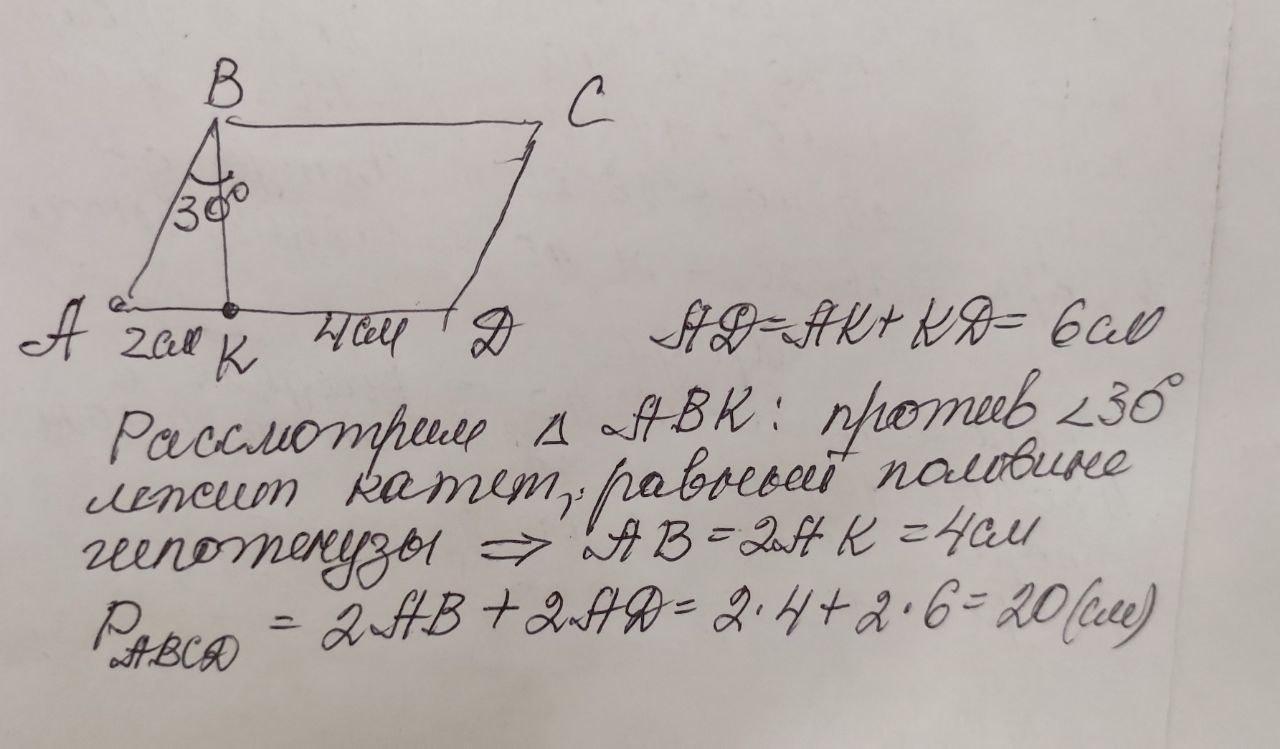 B
C
30°
A 2см K 4см D
AD=AK+KD= 6см
Рассмотрим Δ ABK: против <30°
лежит катет, равный половине
гипотенузы ⇒ AB=2AK=4см
P_ABCD = 2AB+2AD=2·4+2·6=20(см)